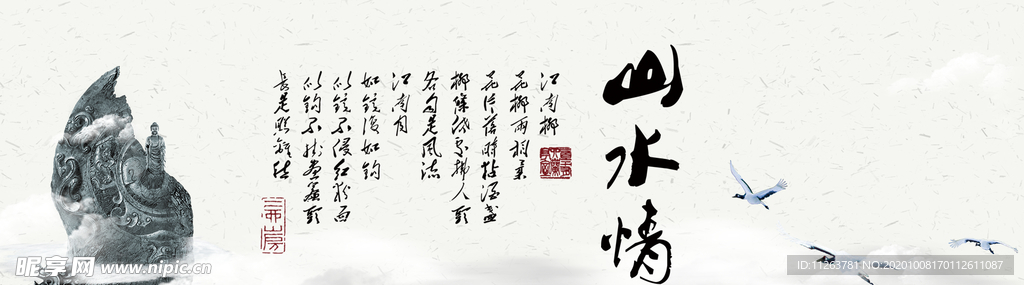 山水情
江南柳
花柳两相柔
花片落时黏酒盏
柳条低处拂人头
各自是风流
江南月
如镜复如钩
似镜不侵红粉面
似钩不挂画帘头
长是照离愁
昵享网 www.nipic.cn
ID:11263781 NO:20201008170112611087